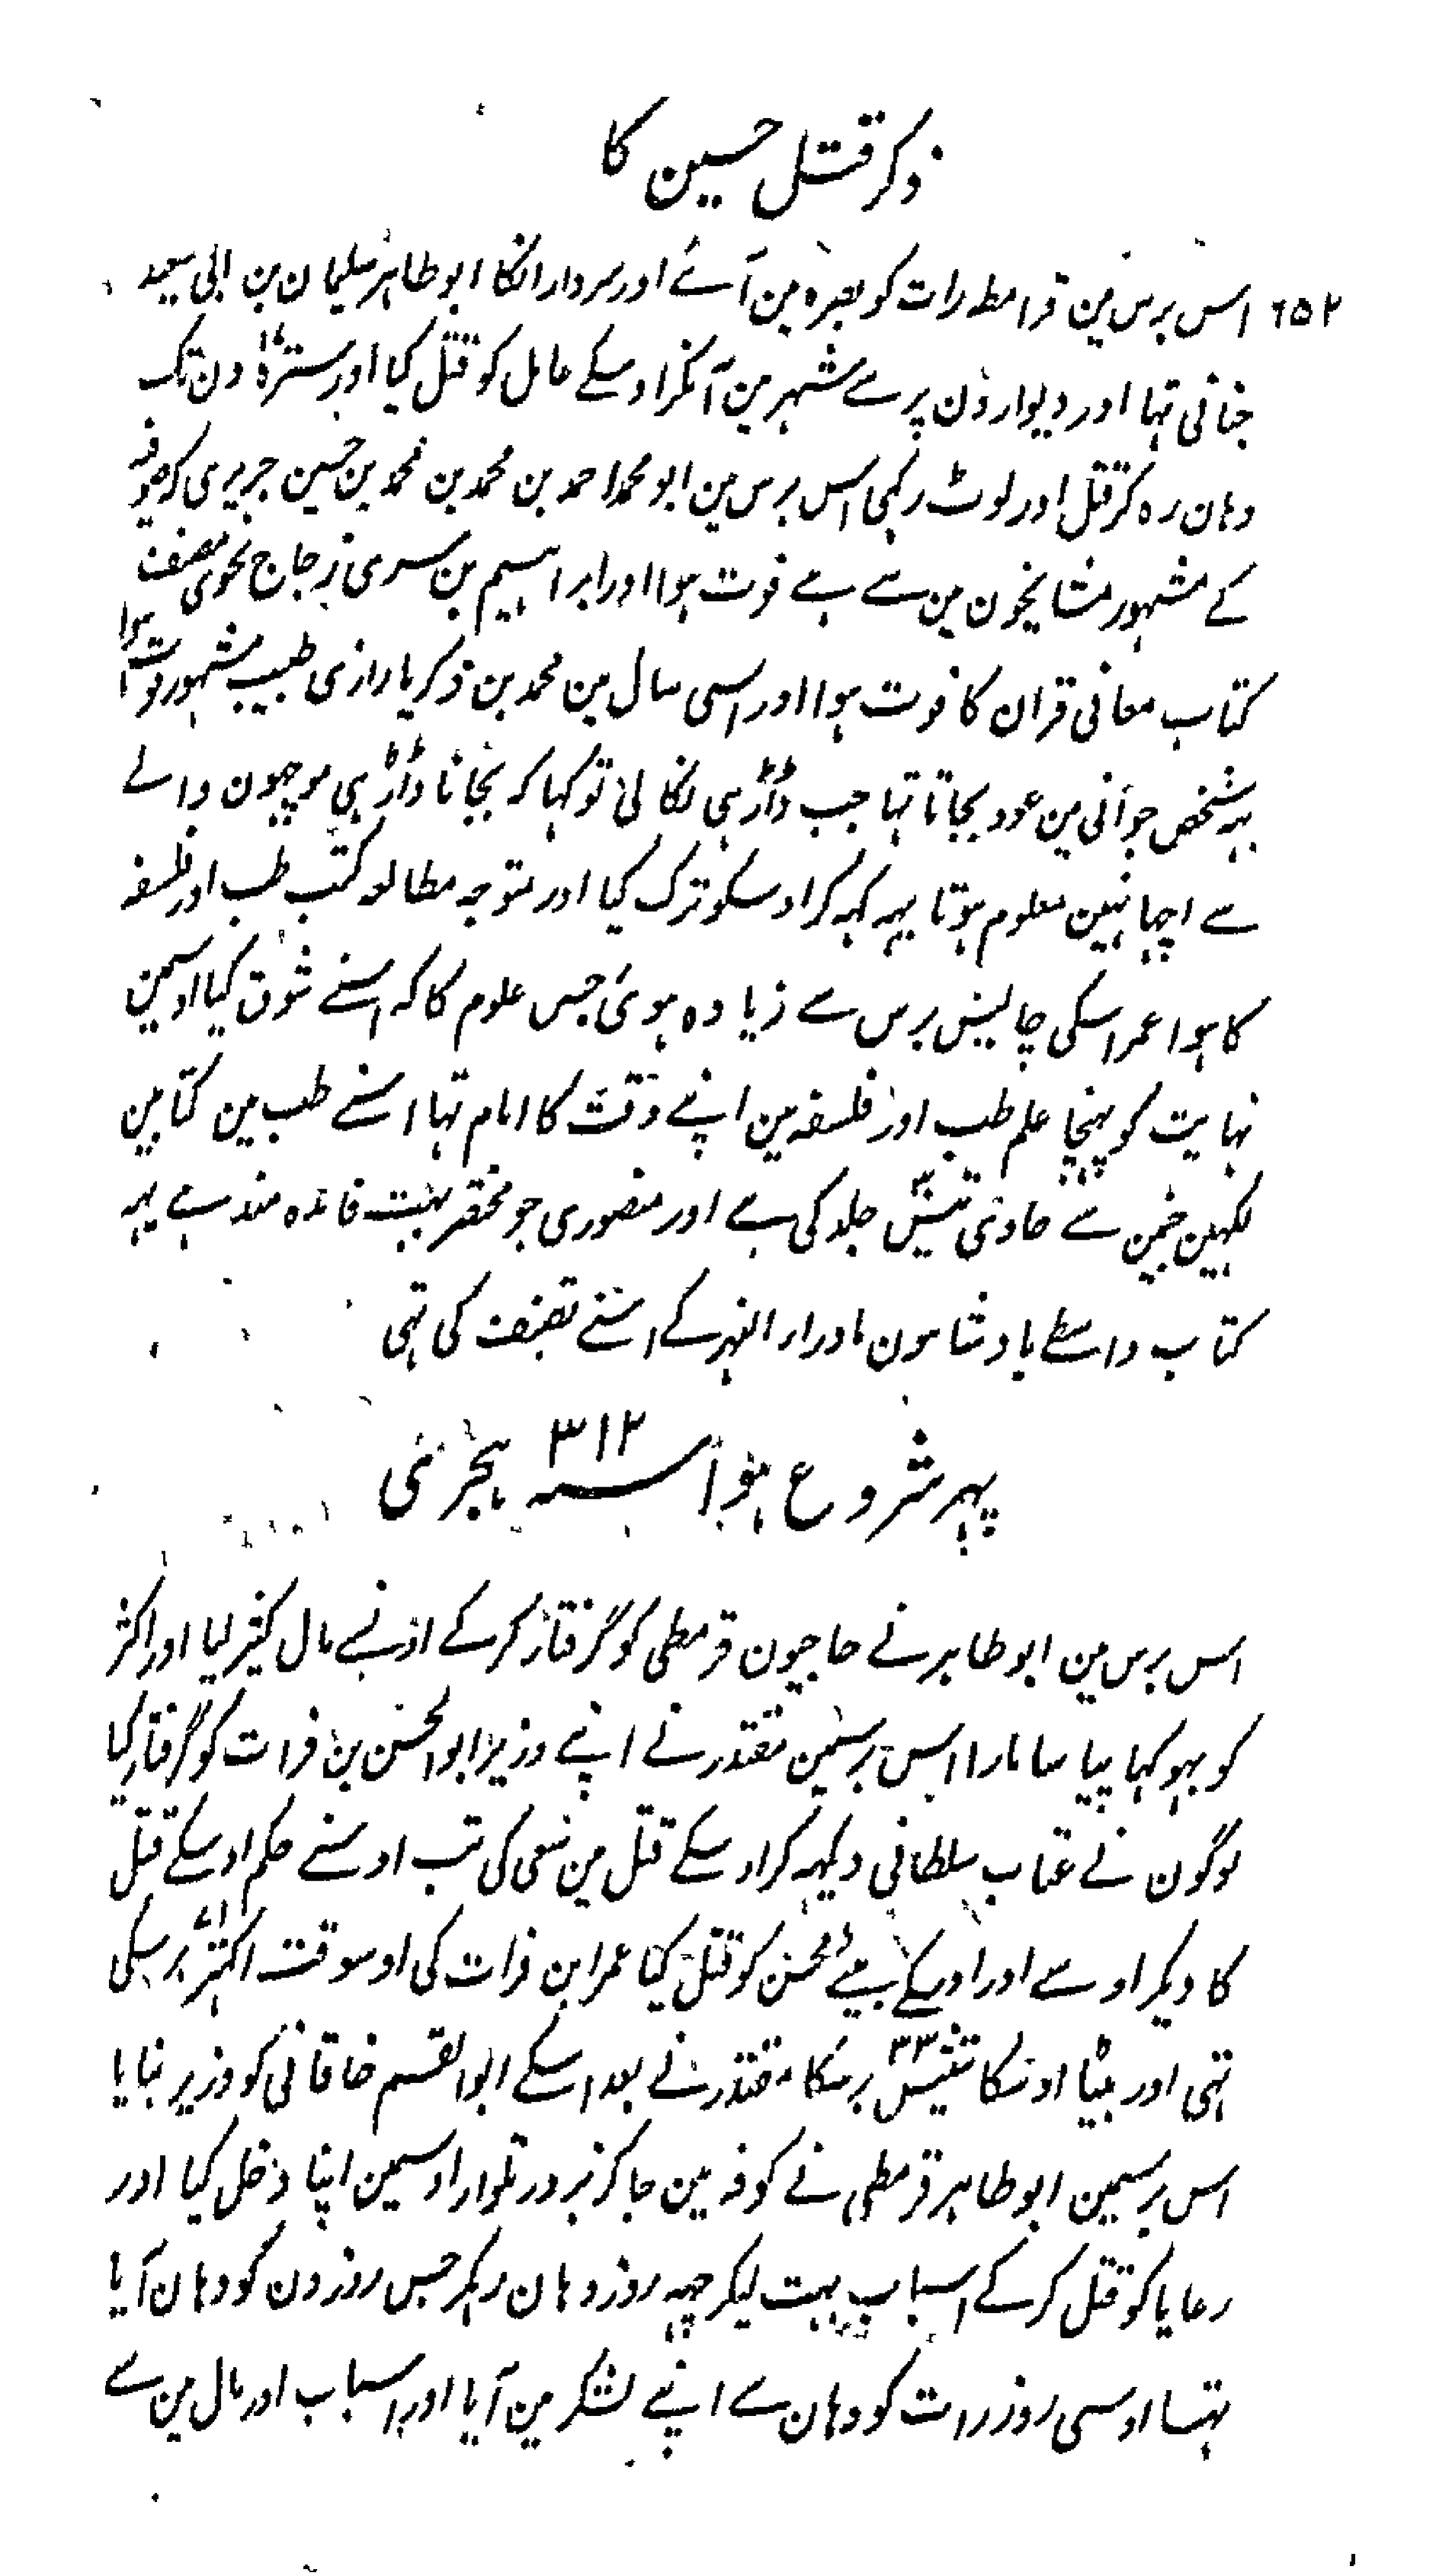 ذکر قتل حسین کا
۶۵۲ اس برس مین قرامطہ رات کو بصرہ مین آئے اور سردار انکا ابو طاہر سلیمان بن ابی سعید
جنابی تہا اور دیوارون پر سے شہر مین آنکر اوسکے عامل کو قتل کیا اور سترہ ۱۷ دن تک
وہان رہ کر قتل اور لوٹ رکہی اس برس مین ابو محمد احمد بن محمد بن محمد بن حسین جریری کہ صوفیہ
کے مشہور مشایخون مین سے ہے فوت ہوا اور ابراہیم بن سری زجاج نحوی مصنف
کتاب معانی قران کا فوت ہوا اور اسی سال مین محمد بن زکریا رازی طبیب مشہور فوت ہوا
یہہ شخص جوانی مین عود بجاتا تہا جب ڈاڑہی نکالی تو کہا کہ بجانا ڈاڑہی موچہون والے
سے اچہا نہین معلوم ہوتا یہہ کہہ کر اوسکو ترک کیا اور متوجہ مطالعہ کتب طب اور فلسفہ
کا ہوا عمر اسکی چالیس برس سے زیادہ ہوئی جس علوم کا کہ اسنے شوق کیا اوسمین
نہایت کو پہنچا علم طب اور فلسفہ مین اپنے وقت کا امام تہا اسنے طب مین کتابین
لکہین جنمین سے حاوی تیس جلد کی ہے اور منصوری جو مختصر بہت فائدہ مند ہے یہہ
کتاب واسطے بادشاہون ماورار النہر کے اسنے تصنیف کی تہی
پہر شروع ہوا سنہ ۳۱۲ ہجری
اس برس مین ابو طاہر نے حاجیون قرمطی کو گرفتار کر کے اونسے مال کثیر لیا اور اکثر
کو بہوکہا پیاسا مارا اس برسمین مقتدر نے اپنے وزیر ابو الحسن بن فرات کو گرفتار کیا
لوگون نے عتاب سلطانی دیکہہ کر اوسکے قتل مین سعی کی تب اوسنے حکم اوسکے قتل
کا دیکر اوسے اور اوسکے بیٹے محسن کو قتل کیا عمر ابن فرات کی اوسوقت اکہتر ۷۱ برسکی
تہی اور بیٹا اوسکا تینتیس ۳۳ برسکا مقتدر نے بعد اسکے ابو القسم خاقانی کو وزیر بنایا
اس برسمین ابو طاہر قرمطی نے کوفہ مین جا کر بزور تلوار اوسمین اپنا دخل کیا اور
رعایا کو قتل کر کے اسباب بہت لیکر چہہ روز وہان رہکر جس روز دن کو وہان آیا
تہا اوسی روز رات کو وہان سے اپنے لشکر مین آیا اور اسباب اور مال مین سے